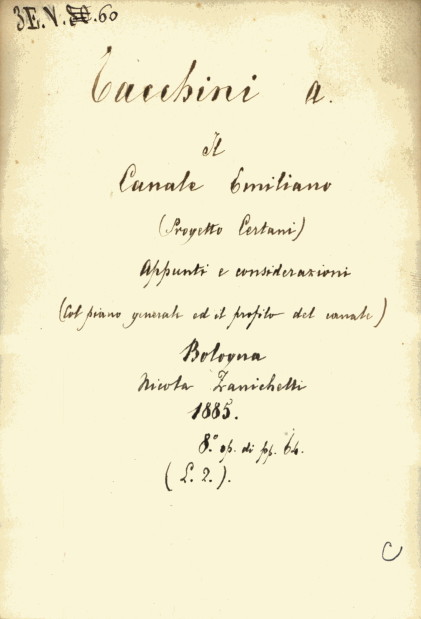 3E.V. 60
Tacchini A.
Il
Canale Emiliano
(Progetto Certani)
Appunti e considerazioni
(Col piano generale ed il profilo del canale)
Bologna
Nicola Zanichelli
1885.
8.° op. di pp. 64.
(L. 2.).
C